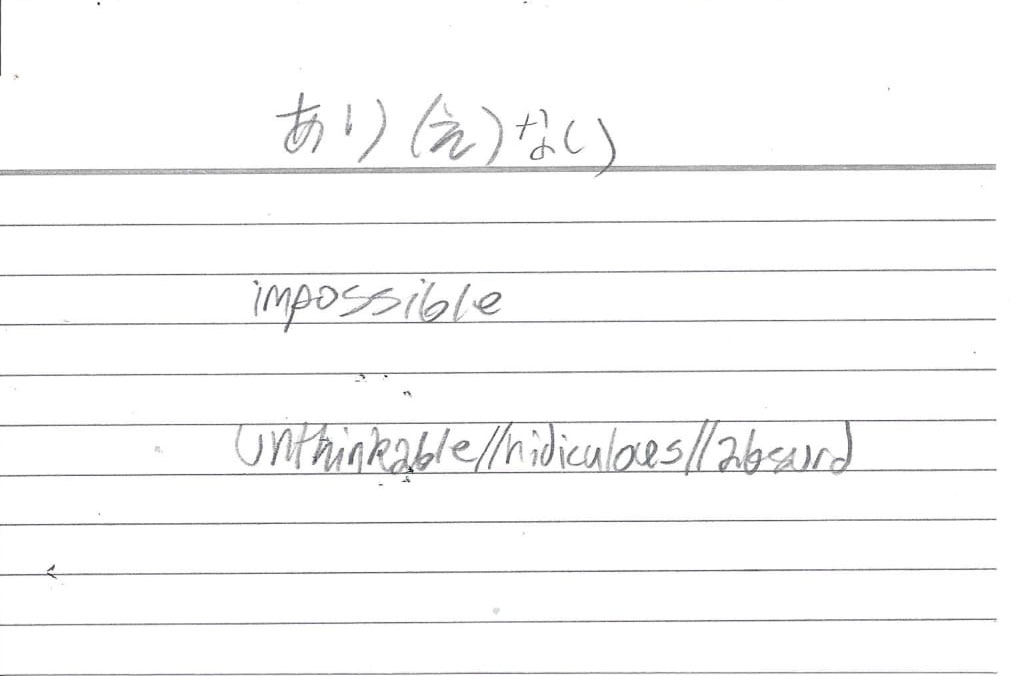 あり(え)ない
impossible
unthinkable//ridiculous//absurd